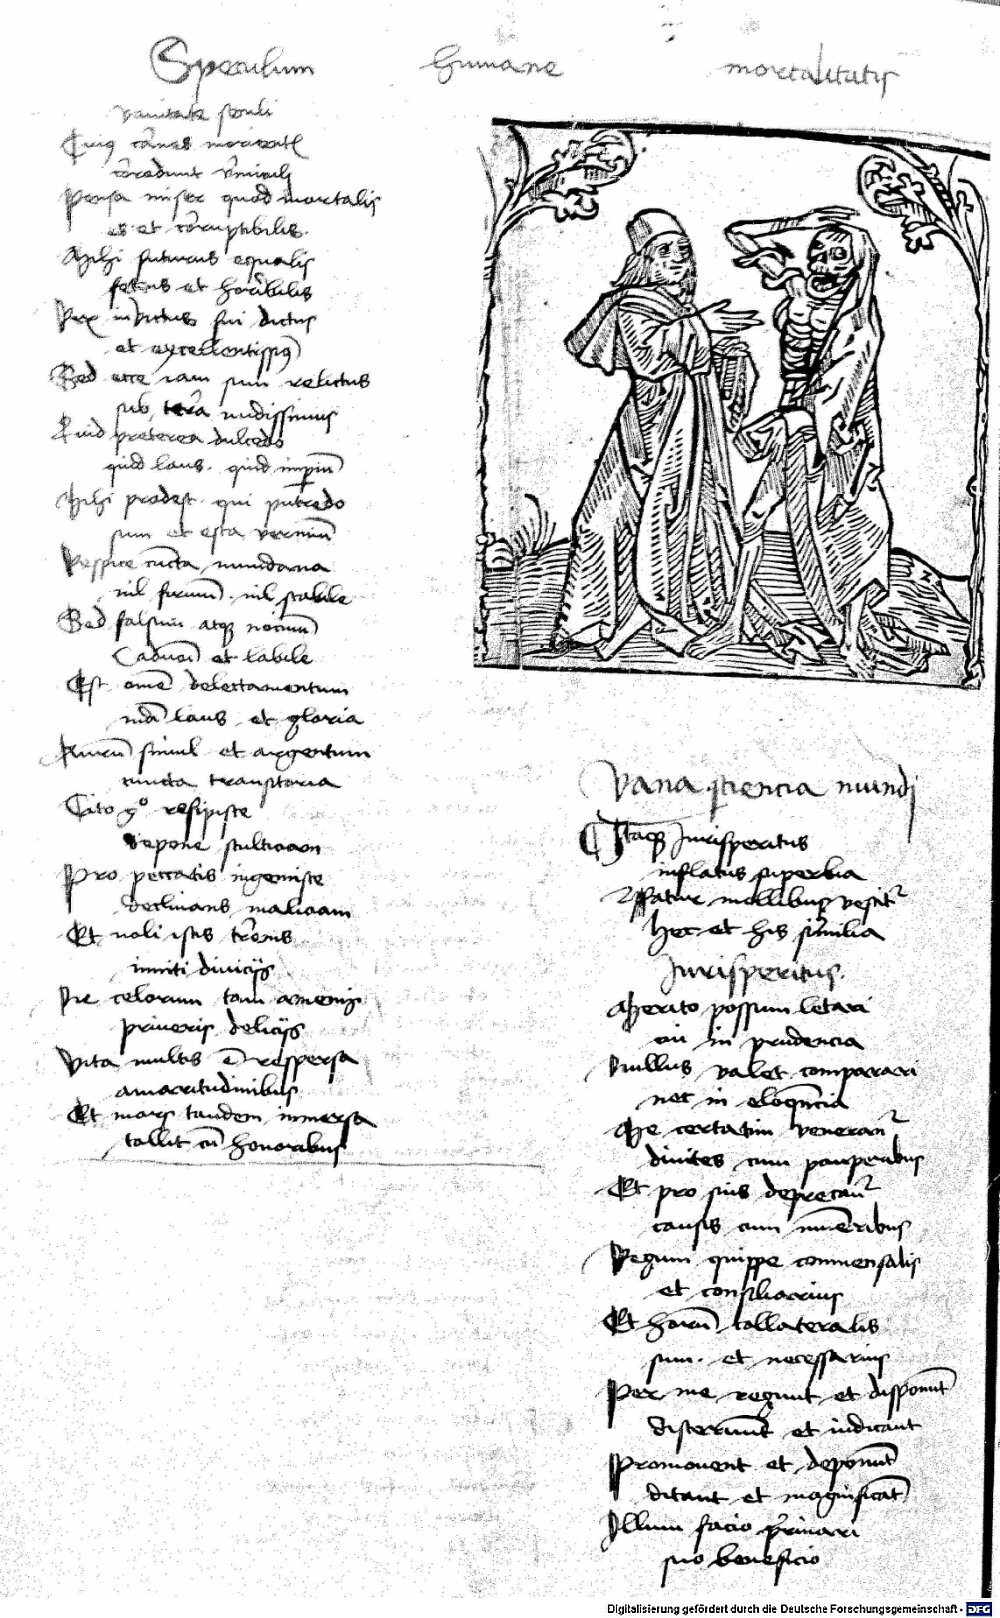 Speculum humane mortalitatis
vanitate seculi
Cuiꝯ carnes
corrodunt vermiculi
Pensa miser quod mortalis
es et corruptibilis.
Michi futurus equalis
fetens et horribilis
Rex invictus fui dictus
et excellentissimꝯ
Sed ecce iam sum relictus
sub terra nudissimus
Quid preterea dulcedo
quid laus. quid imperiū
Michi prodest. qui putredo
sum et esca vermiū
Respice cuncta mundana
nil firmū. nil stabile
Sed falsum atqꝫ nociuū
Caducū et labile
Est omē delectamentum
laus et gloria
Aurū simul et argentum
cuncta transitoria
Cito gͦ resipiste
depone stulticiam
Pro peccatis ingemiste
declinans maliciam
Et noli istis terrenis
inniti diuicijs
Ne celorum tam amenis
priueris delicijs
Vita multis ē respersa
amaritudinibus
Et mors tandem inmersa
tollit cū honoribus
Vana sciencia mundi
Itaqꝫ Jurisperitus
inflatus superbia
mollibus vestitᷣ
hec et his similia
Jurisperitus.
Merito possum letari
cui in prudencia
Nullus valet comparari
nec in eloquēcia
Me certatim veneranᷣ
diuites cum pauperibus
Et pro suis deprecanᷣ
causis cum muneribus
Regum quippe commensalis
et consiliarius
Et horū collateralis
sum. et necessarius
Per me regunt et disponūt
discernūt et iudicant
Promouent et deponūt
ditant et magnificāt
Illum facio priuari
suo beneficio
Digitalisierung gefördert durch die Deutsche Forschungsgemeinschaft - DFG